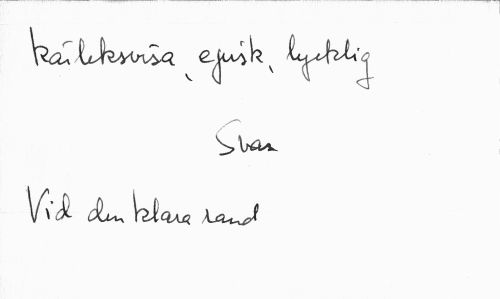 Kärleksvisa, episk, lycklig
Svan
Vid den klara rand